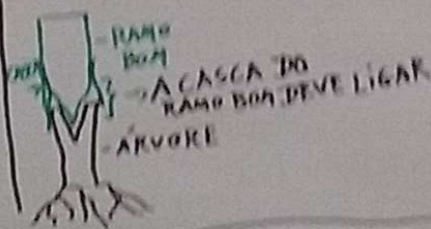 RAMO
BOM
A CASCA DO
RAMO BOM DEVE LIGAR
ÁRVORE